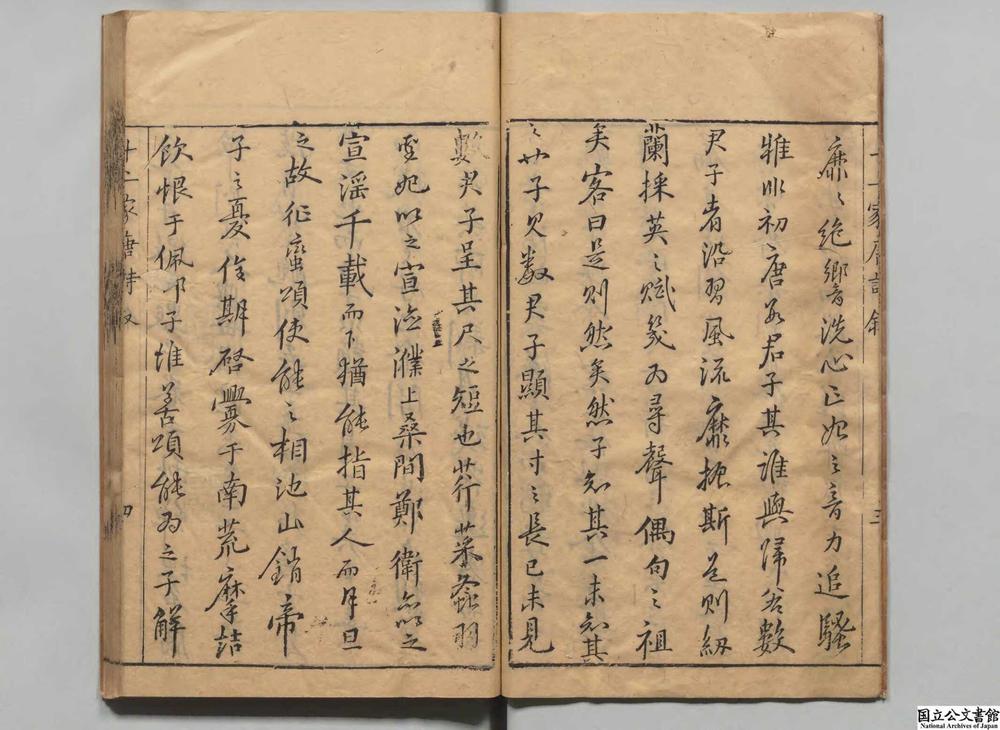 十二家唐詩叙
三
靡〻絶響洗心正始之音力追騷
雅非初唐君子其誰與歸若數
君子者沿習風流靡
斯
則紉
蘭採英之賦
為尋聲偶句之祖
矣客曰是則然矣然子知其一未知其
二
子
數君子顯其寸之長已未見
數君子呈其尺之短也荇菜螽羽
后妃以之宣
濮上桑間鄭衛亦以之
宣淫千載而下猶能指其人而月旦
之故
頌使能之相
山銷帝
子之憂
期啓釁于南荒摩詰
飲恨于佩
子惟善頌能為之子解
十二家唐詩叙
四
国立公文書館
National Archives of Japan